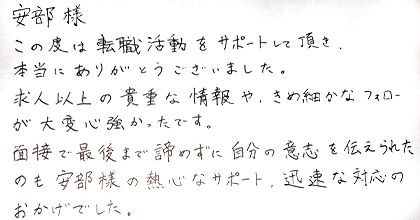 安部様
この度は転職活動をサポートして頂き、
本当にありがとうございました。
求人以上の貴重な情報や、きめ細かなフォロー
が大変心強かったです。
面接で最後まで諦めずに自分の意志を伝えられた
のも安部様の熱心なサポート、迅速な対応の
おかげでした。